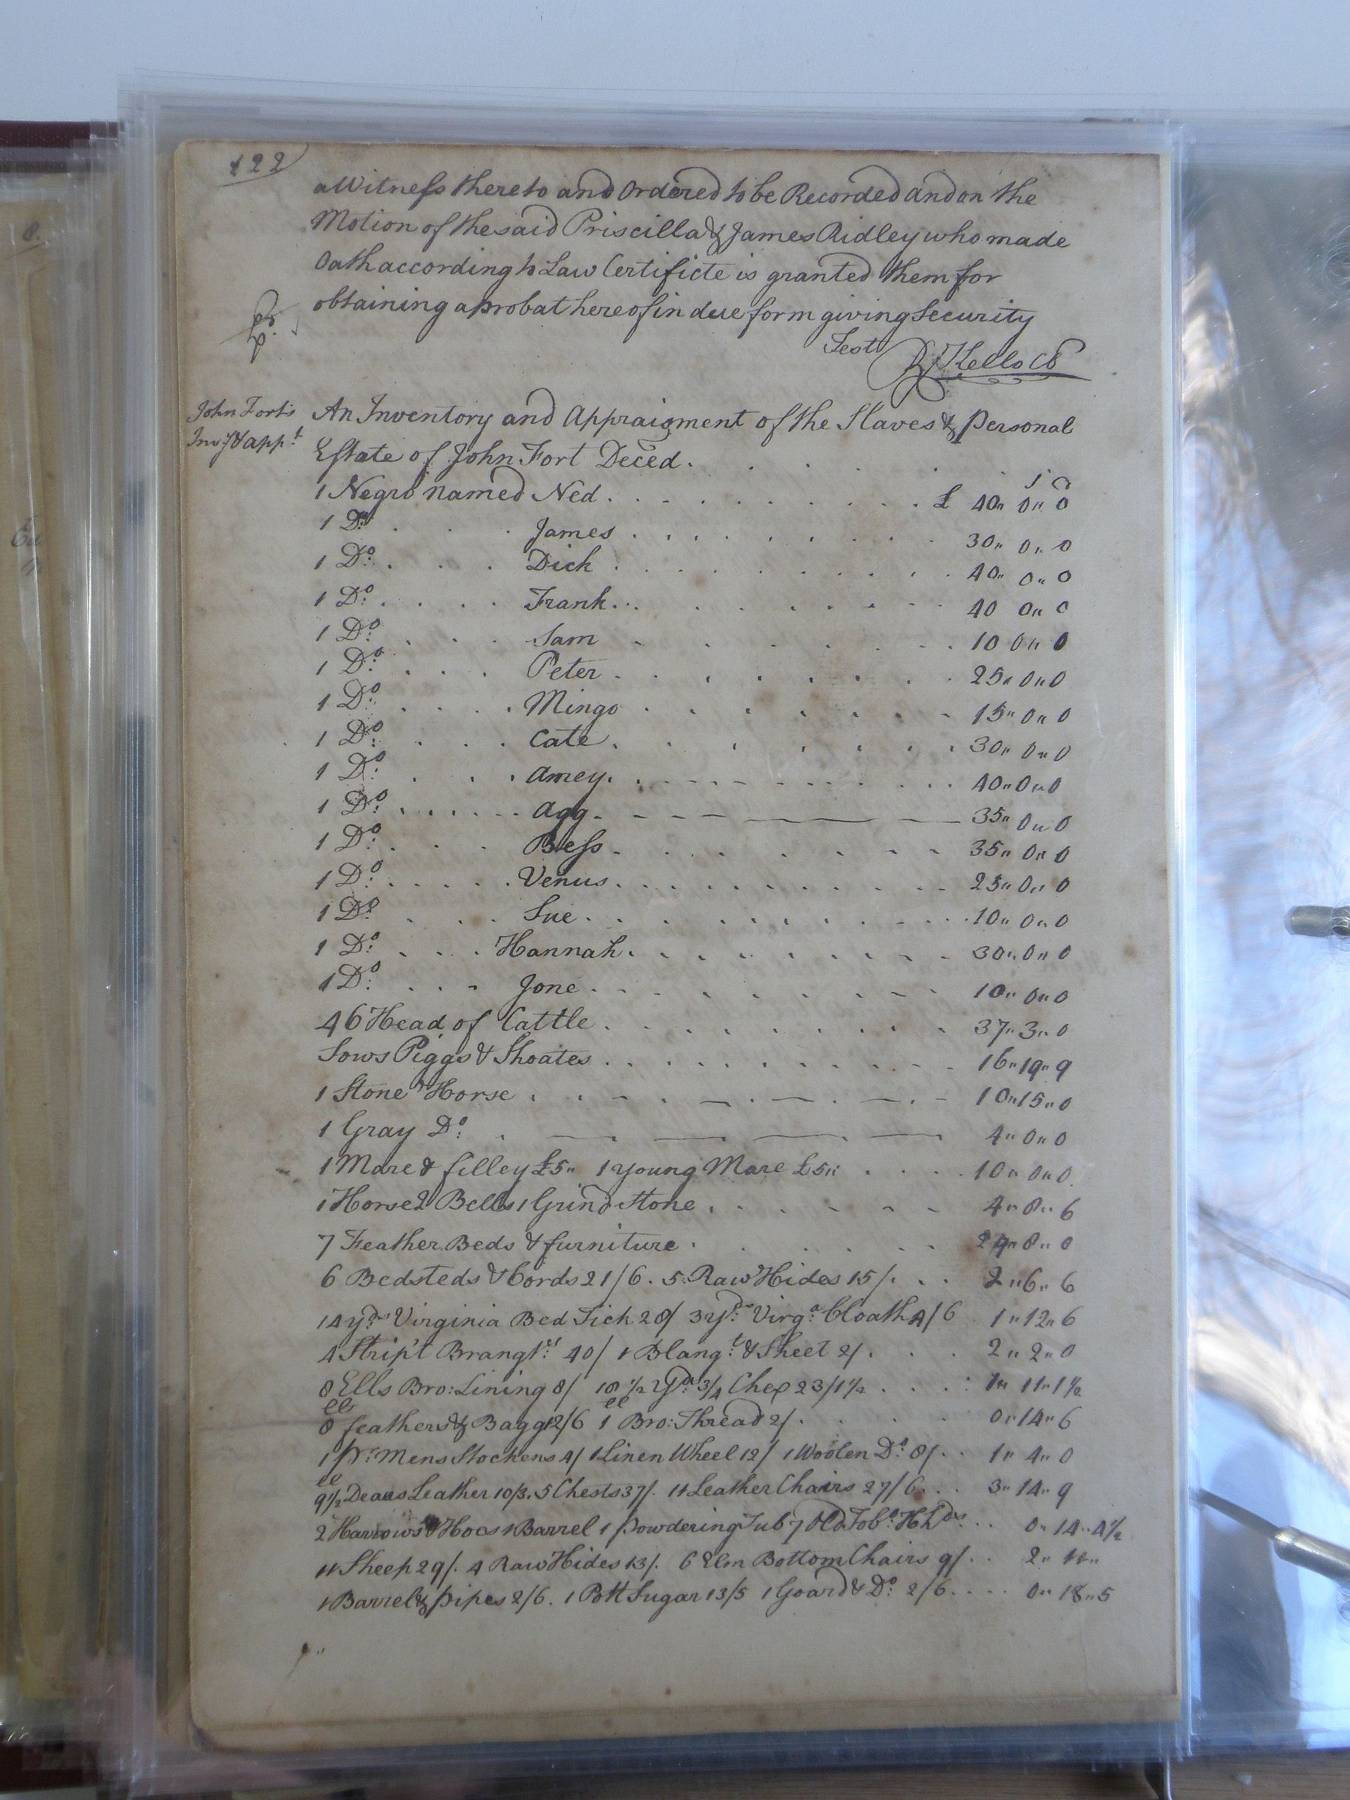 122
a Witness thereto and Ordered to be Recorded and on the
Motion of the said Priscilla & James Ridley who made
Oath according to Law Certificte is granted them for
obtaining a probat hereof in due form giving Security
Test R Kello CC
John Fort's
Invy & appt
An Inventory and Appraisment of the Slaves & Personal
Estate of John Fort Deced.
s d
1 Negro named Ned £ 40 " 0 " 0
1 Do James 30 " 0 " 0
1 Do Dick 40 " 0 " 0
1 Do Frank 40 0 " 0
1 Do Sam 10 0 " 0
1 Do Peter 25 " 0 " 0
1 Do Mingo 15 " 0 " 0
1 Do Cate 30 " 0 " 0
1 Do Amey 40 " 0 " 0
1 Do Agg 35 " 0 " 0
1 Do Bess 35 " 0 " 0
1 Do Venus 25 " 0 " 0
1 Do Sue 10 " 0 " 0
1 Do Hannah 30 " 0 " 0
1 Do Jone 10 " 0 " 0
46 Head of Cattle 37 " 3 " 0
Sows Piggs & Shoates 16 " 19 " 9
1 Stone Horse 10 " 15 " 0
1 Gray Do 4 " 0 " 0
1 Mare & filley £5 " 1 young Mare £5 " 10 " 0 " 0
1 Horse 2 Bells 1 Grind Stone 4 " 8 " 6
7 Feather Beds & furniture 24 " 8 " 0
6 Bedsteds & Cords 21/6. 5 Raw Hides 15/. 2 " 6 " 6
14 yds Virginia Bed Tick 28/ 3 yds Virga Cloath 4/6 1 " 12 " 6
4 Strip't 40/ 1 Blangt & Sheet 2/. 2 " 2 " 0
8 Ells Bro: Lining 8/ 18 1/2 Yd 3/4 Chex 23/1 1/2 1 " 11 " 1 1/2
8 ll feathers & Bagg 12/6 1 ll Bro: Thread 2/. 0 " 14 " 6
1 Pr Mens Stockens 4/ 1 Linen Wheel 12/ 1 Woolen Do 8/. 1 " 4 " 0
9 1/2 ll Leather 10/3. 5 Chests 37/. 11 Leather Chairs 27/6 3 " 14 " 9
2 Harrows Hoes 1 Barrel 1 Powdering Tub 7 Old Tobo Hhds 0 " 14 " 4 1/2
11 Sheep 29/. 4 Raw Hides 13/. 6 Elm Bottom Chairs 9/. 2 " 11 "
1 Barrel & pipes 2/6. 1 Pott Sugar 13/5 1 Goard & Do 2/6 0 " 18 " 5